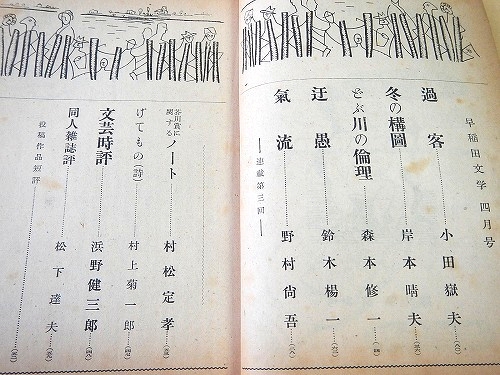 早稲田文学 四月号
過客 小田嶽夫
冬の構圖 岸本晴夫
どぶ川の倫理 森本修一
迂愚 鈴木楊一
氣流 野村尙吾
―連載第三回―
芥川賞に関する ノート 村松定孝
げてもの(詩) 村上菊一郎
文芸時評 浜野健三郎
同人雑誌評 松下達夫
投稿作品短評